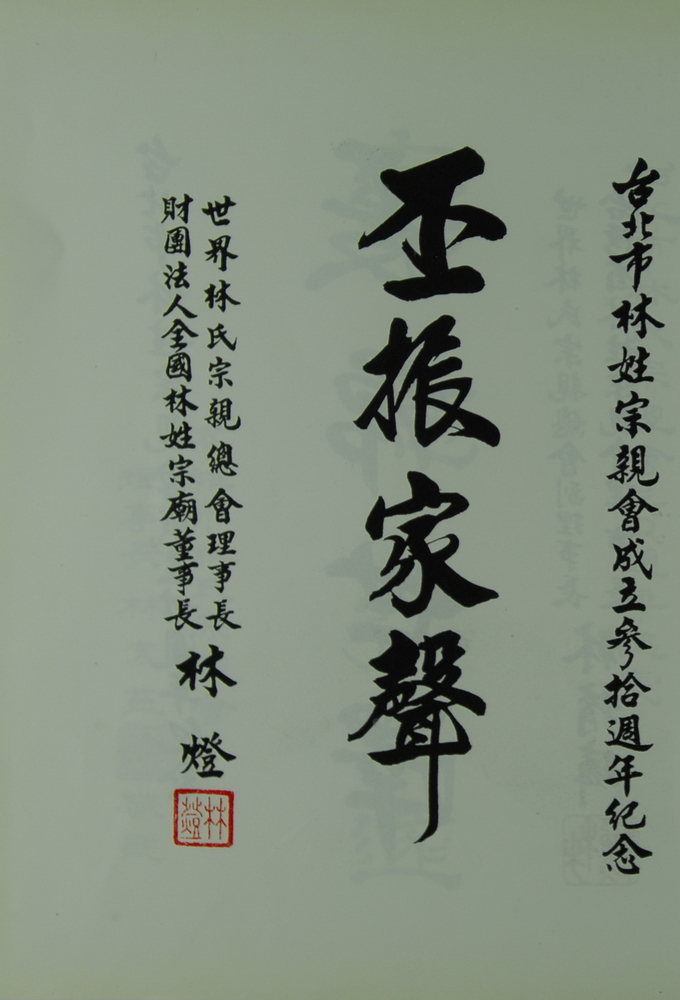 台北市林姓宗親會成立參拾週年紀念
丕振家聲
世界林氏宗親總會理事長
財團法人全國林姓宗廟董事長
林燈
林燈